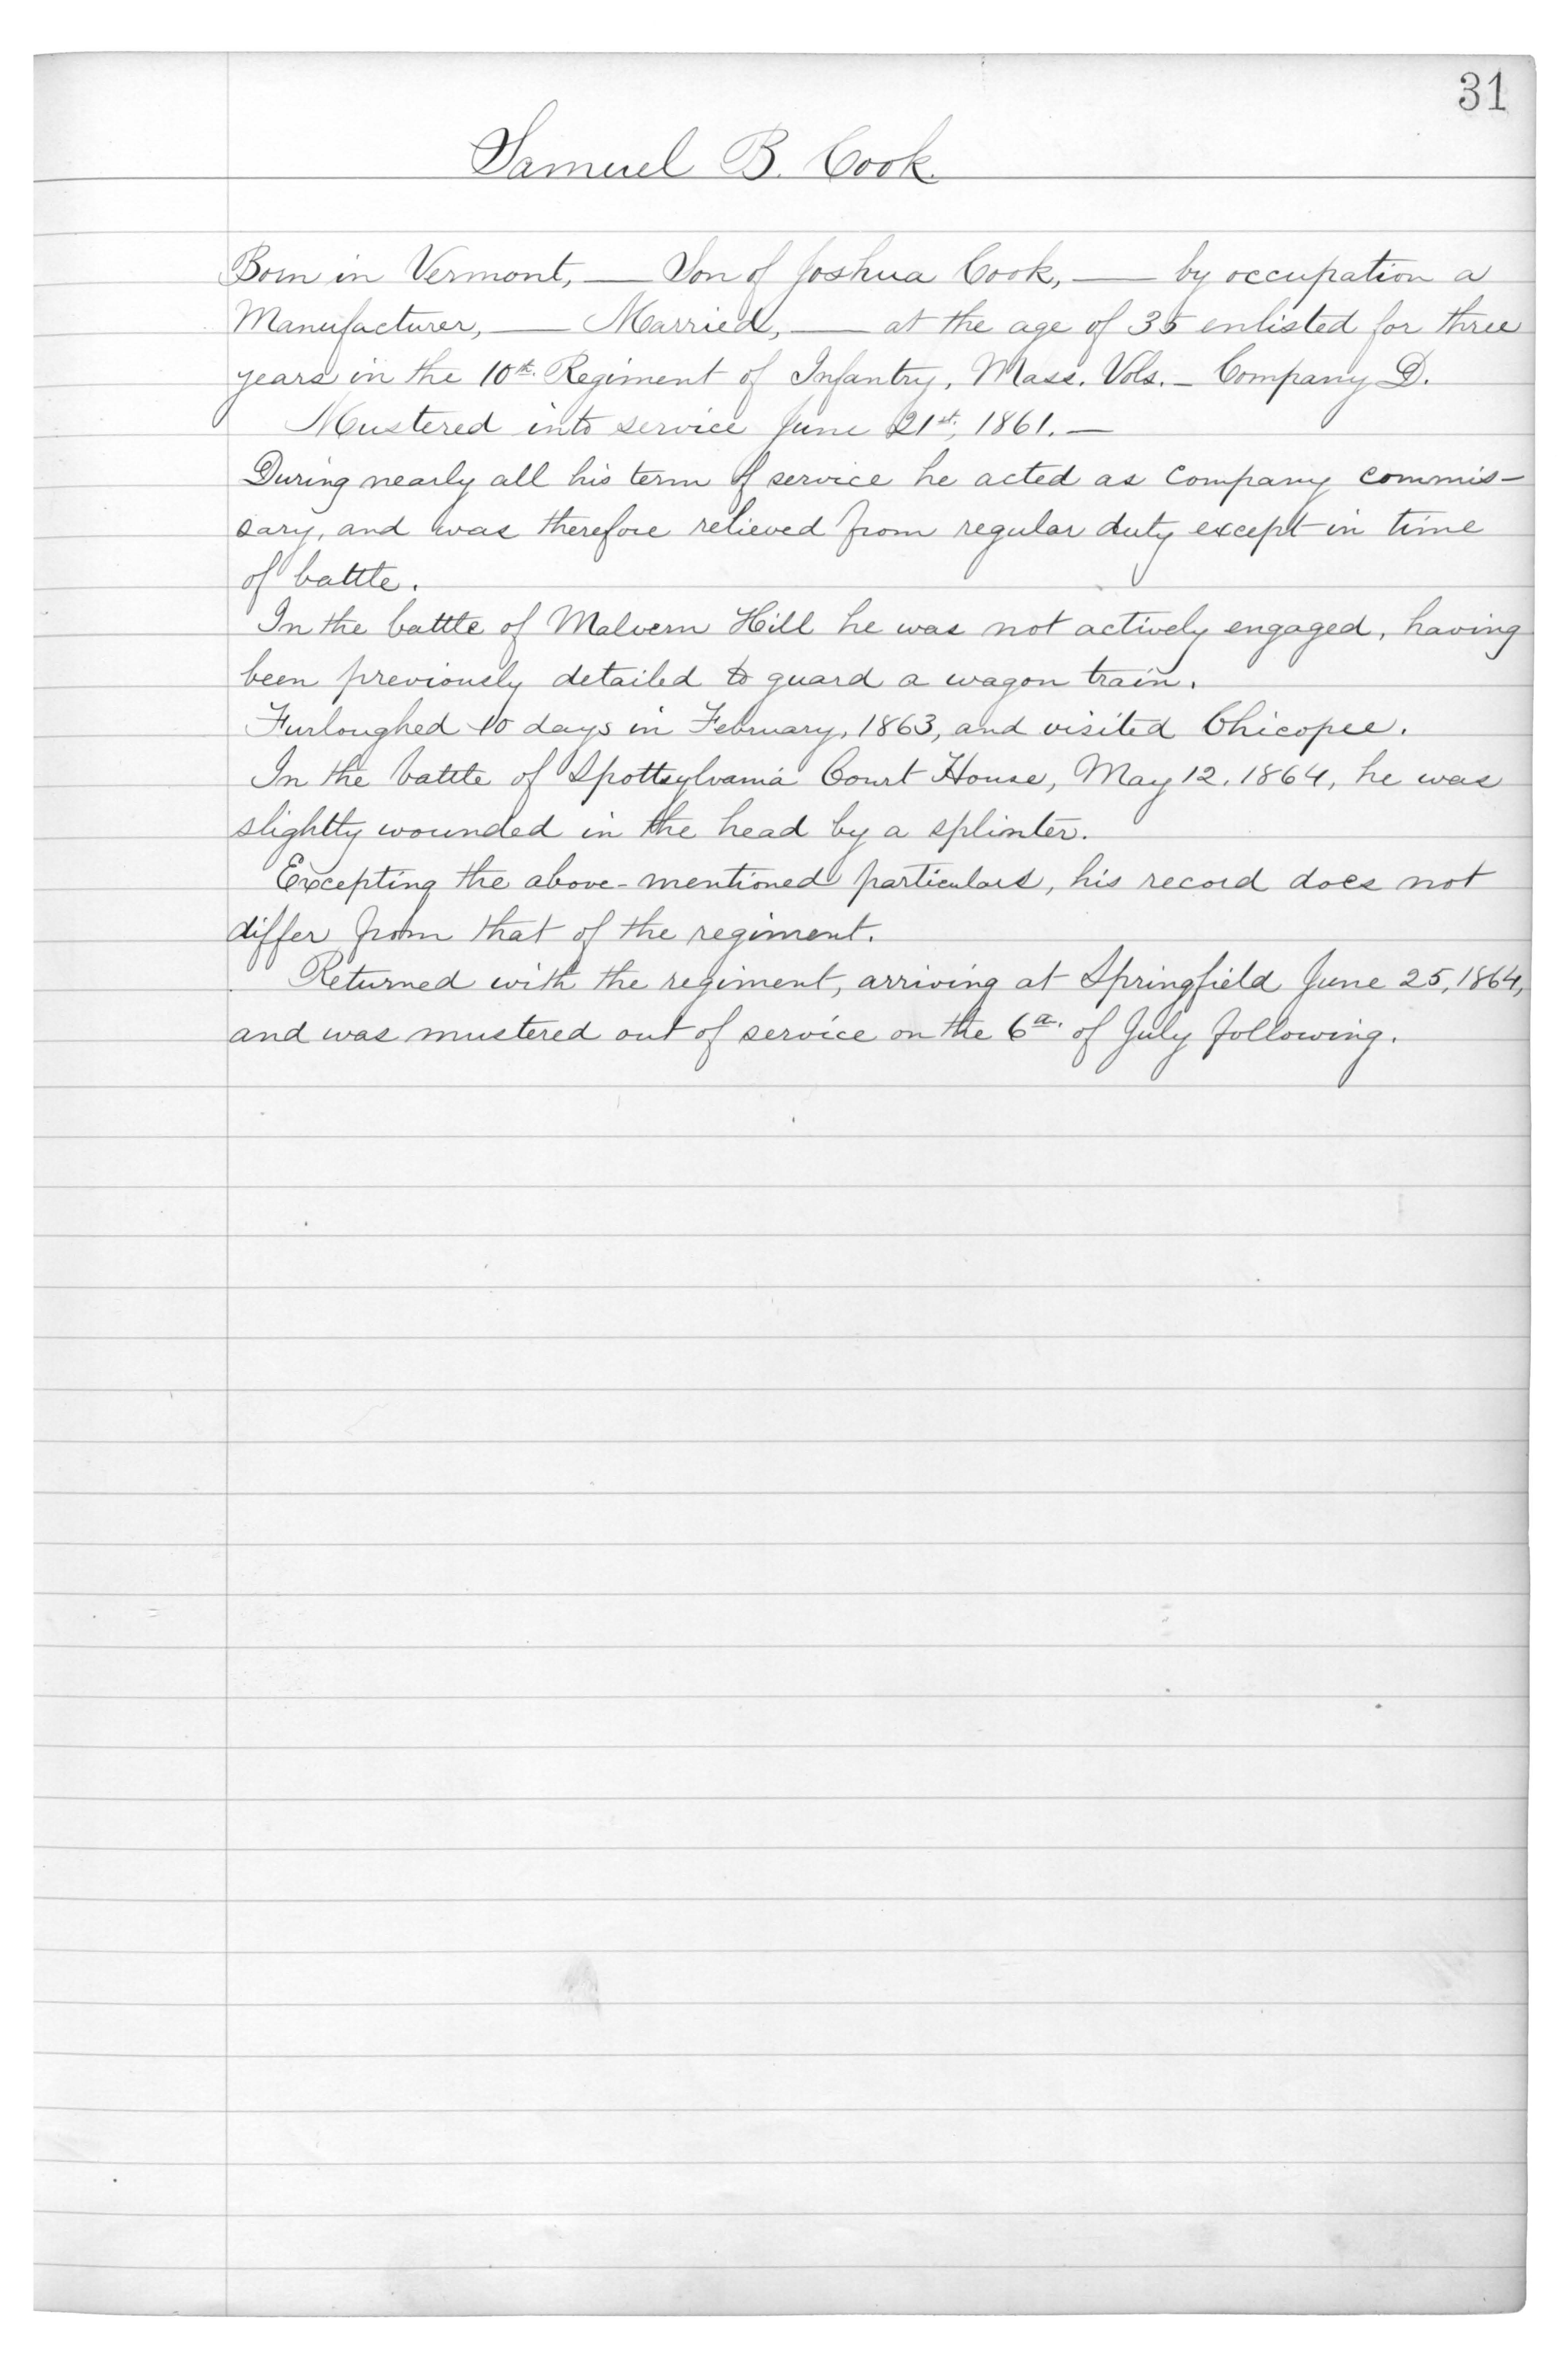 31
Samuel B. Cook.
Born in Vermont, — Son of Joshua Cook, — by occupation a
Manufacturer, — Married, — at the age of 35 enlisted for three
years in the 10th. Regiment of Infantry, Mass. Vols. – Company D.
Mustered into service June 21st, 1861. —
During nearly all his term of service he acted as company commis-
sary, and was therefore relieved from regular duty except in time
of battle.
In the battle of Malvern Hill he was not actively engaged, having
been previously detailed to guard a wagon train.
Furloughed 10 days in February, 1863, and visited Chicopee.
In the battle of Spottsylvania Court House, May 12, 1864, he was
slightly wounded in the head by a splinter.
Excepting the above-mentioned particulars, his record does not
differ from that of the regiment.
Returned with the regiment, arriving at Springfield June 25, 1864,
and was mustered out of service on the 6th. of July following.